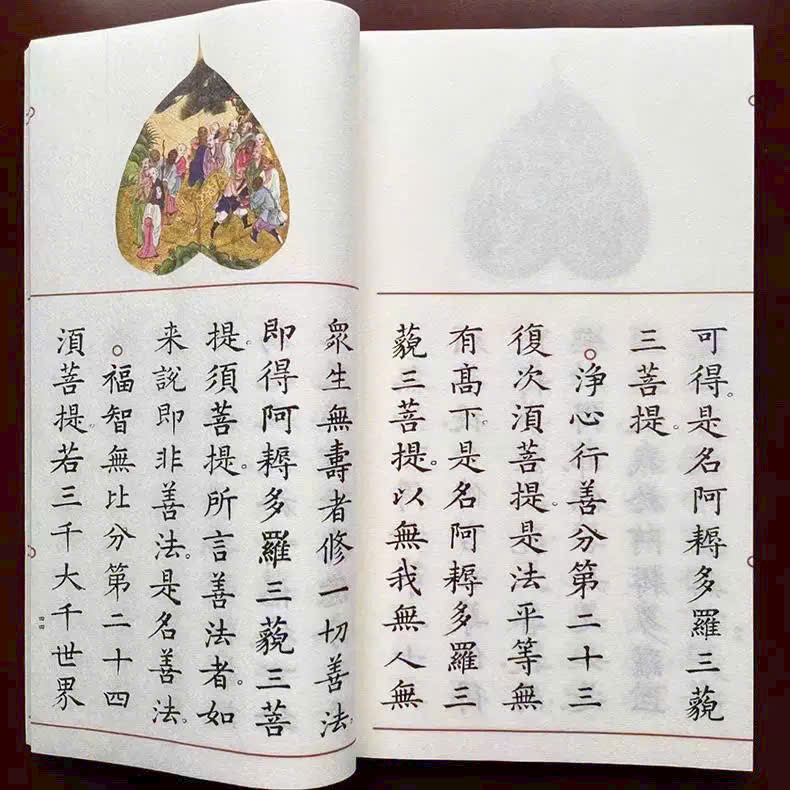 可得。是名阿耨多羅三藐
三菩提。
○淨心行善分第二十三
復次湏菩提。是法平等無
有髙下。是名阿耨多羅三
藐三菩提。以無我無人無
眾生無壽者修一切善法。
即得阿耨多羅三藐三菩
提。須菩提。所言善法者。如
来說即非善法。是名善法。
○福智無比分第二十四
湏菩提。若三千大千世界
四四